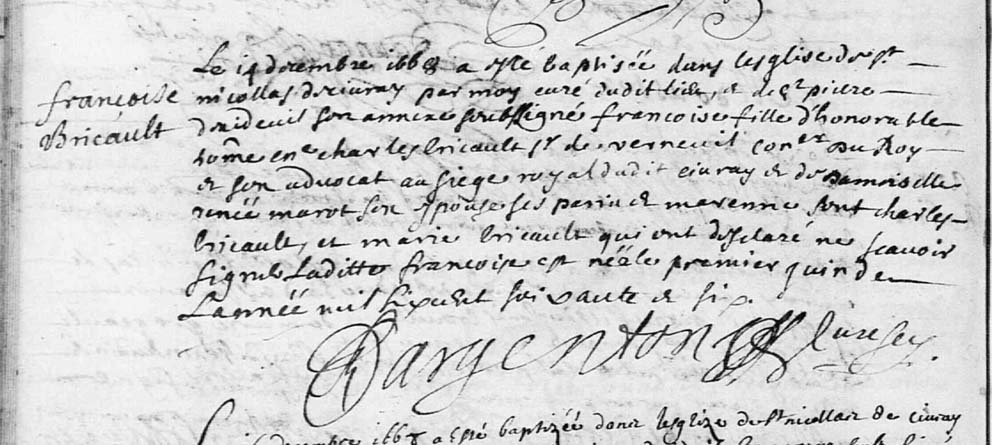 françoise
Bricault
Le 14 decembre 1668 a esté baptisée dans lesglise de st
nicollas de civray par moy curé dudit lieu, et de st pierre
son annexe soubssigné francoise fille d'honorable
home charles bricault sr de verneuil coner du Roy
et son advocat au siege royal dudit civray et de damoiselle
renée marot son espouse ses parin et marenne sont charles
bricault, et marie bricault qui ont desclaré ne scavoir
signer Laditte francoise est néé le premier juin de
Lannéé mil six cent soixante et six.
Dargenton
decembre 1668 a esté baptizéé dans lesglize de St nicollas de civray